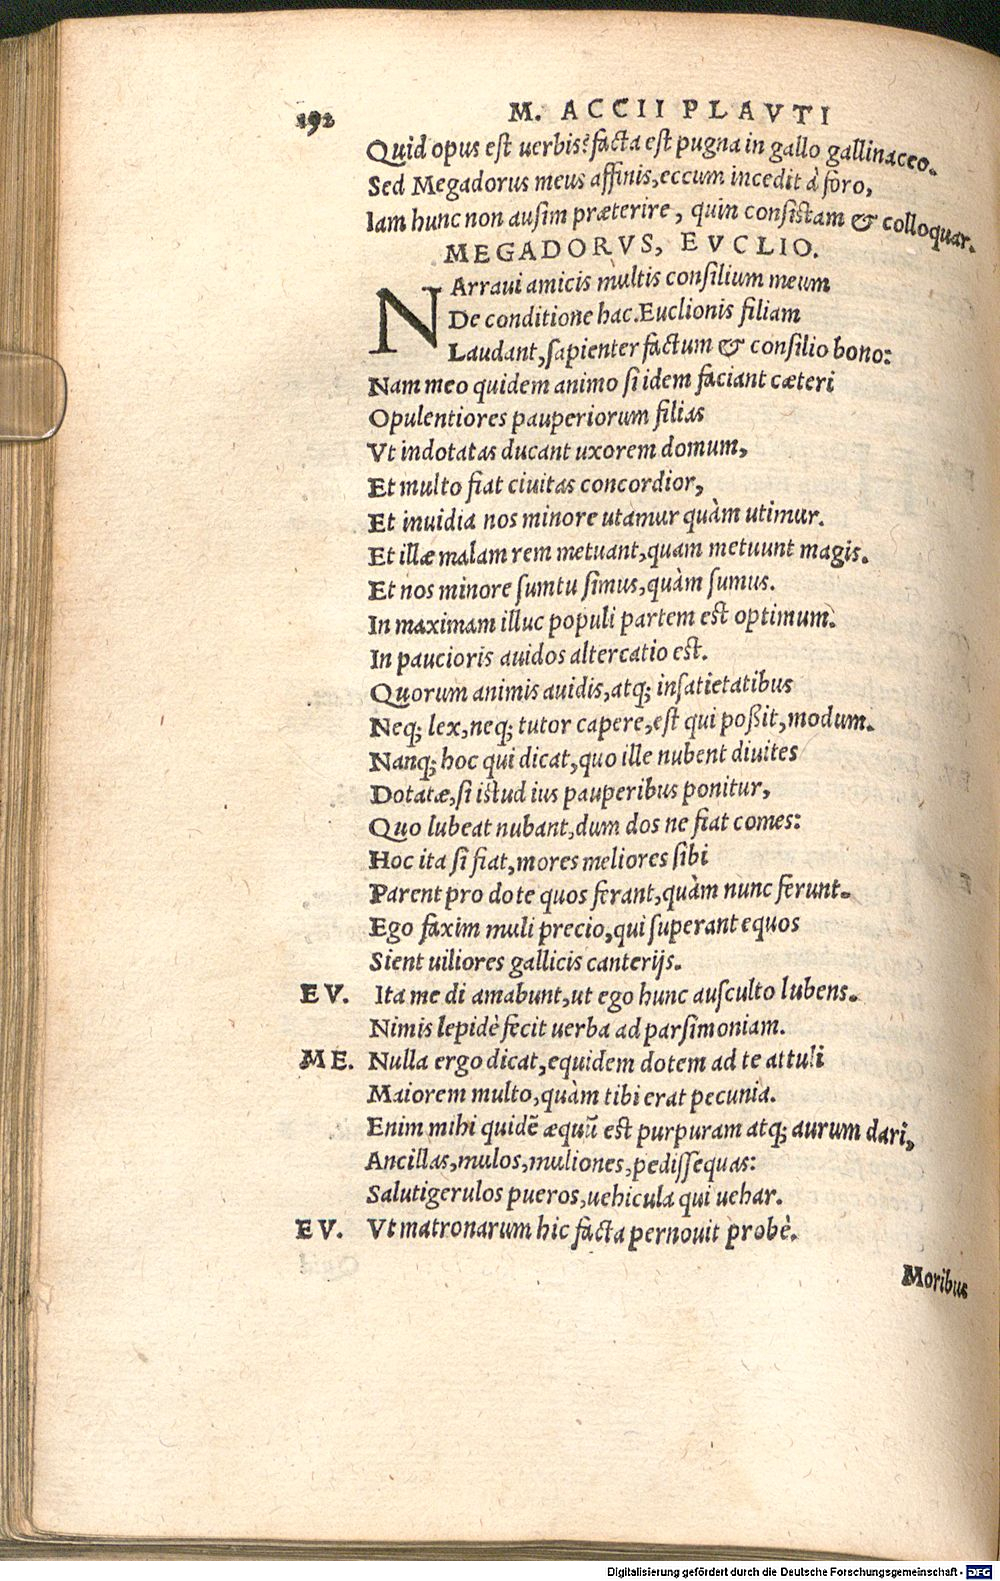 192 M. ACCII PLAVTI
Quid opus est uerbis? facta est pugna in gallo gallinaceo.
Sed Megadorus meus affinis, eccum incedit à foro,
Iam hunc non ausim præterire, quin consistam & colloquar.
MEGADORVS, EVCLIO.
NArraui amicis multis consilium meum
De conditione hac. Euclionis filiam
Laudant, sapienter factum & consilio bono:
Nam meo quidem animo si idem faciant cæteri
Opulentiores pauperiorum filias
Vt indotatas ducant uxorem domum,
Et multo fiat ciuitas concordior,
Et inuidia nos minore utamur quàm utimur.
Et illæ malam rem metuant, quam metuunt magis.
Et nos minore sumtu simus, quàm sumus.
In maximam illuc populi partem est optimum.
In paucioris auidos altercatio est.
Quorum animis auidis, atq; insatietatibus
Neq; lex, neq; tutor capere, est qui poßit, modum.
Nanq; hoc qui dicat, quo ille nubent diuites
Dotatæ, si istud ius pauperibus ponitur,
Quo lubeat nubant, dum dos ne fiat comes:
Hoc ita si fiat, mores meliores sibi
Parent pro dote quos ferant, quàm nunc ferunt.
Ego faxim muli precio, qui superant equos
Sient uiliores gallicis canterijs.
EV. Ita me di amabunt, ut ego hunc ausculto lubens.
Nimis lepidè fecit uerba ad parsimoniam.
ME. Nulla ergo dicat, equidem dotem ad te attuli
Maiorem multo, quàm tibi erat pecunia.
Enim mihi quidē æquū est purpuram atq; aurum dari,
Ancillas, mulos, muliones, pedissequas:
Salutigerulos pueros, uehicula qui uehar.
EV. Vt matronarum hic facta pernouit probè.
Moribus
Digitalisierung gefördert durch die Deutsche Forschungsgemeinschaft - DFG